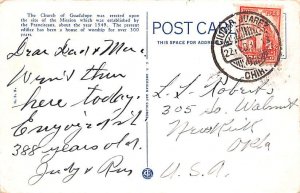 The Church of Guadalupe was erected upon
the site of the Mission which was established by
the Franciscans, about the year 1549. The present
edifice has been a home of worship for over 300
years.
POST CARD
THIS SPACE FOR ADDRESS
Dear Dad & Mom
Went thru
here today.
Enjoyed it
388 years old.
Judy & Russ
L. L. Roberts
305 So. Walnut
Newkirk
Okla
U.S.A.
CIUDAD JUAREZ
CHIH